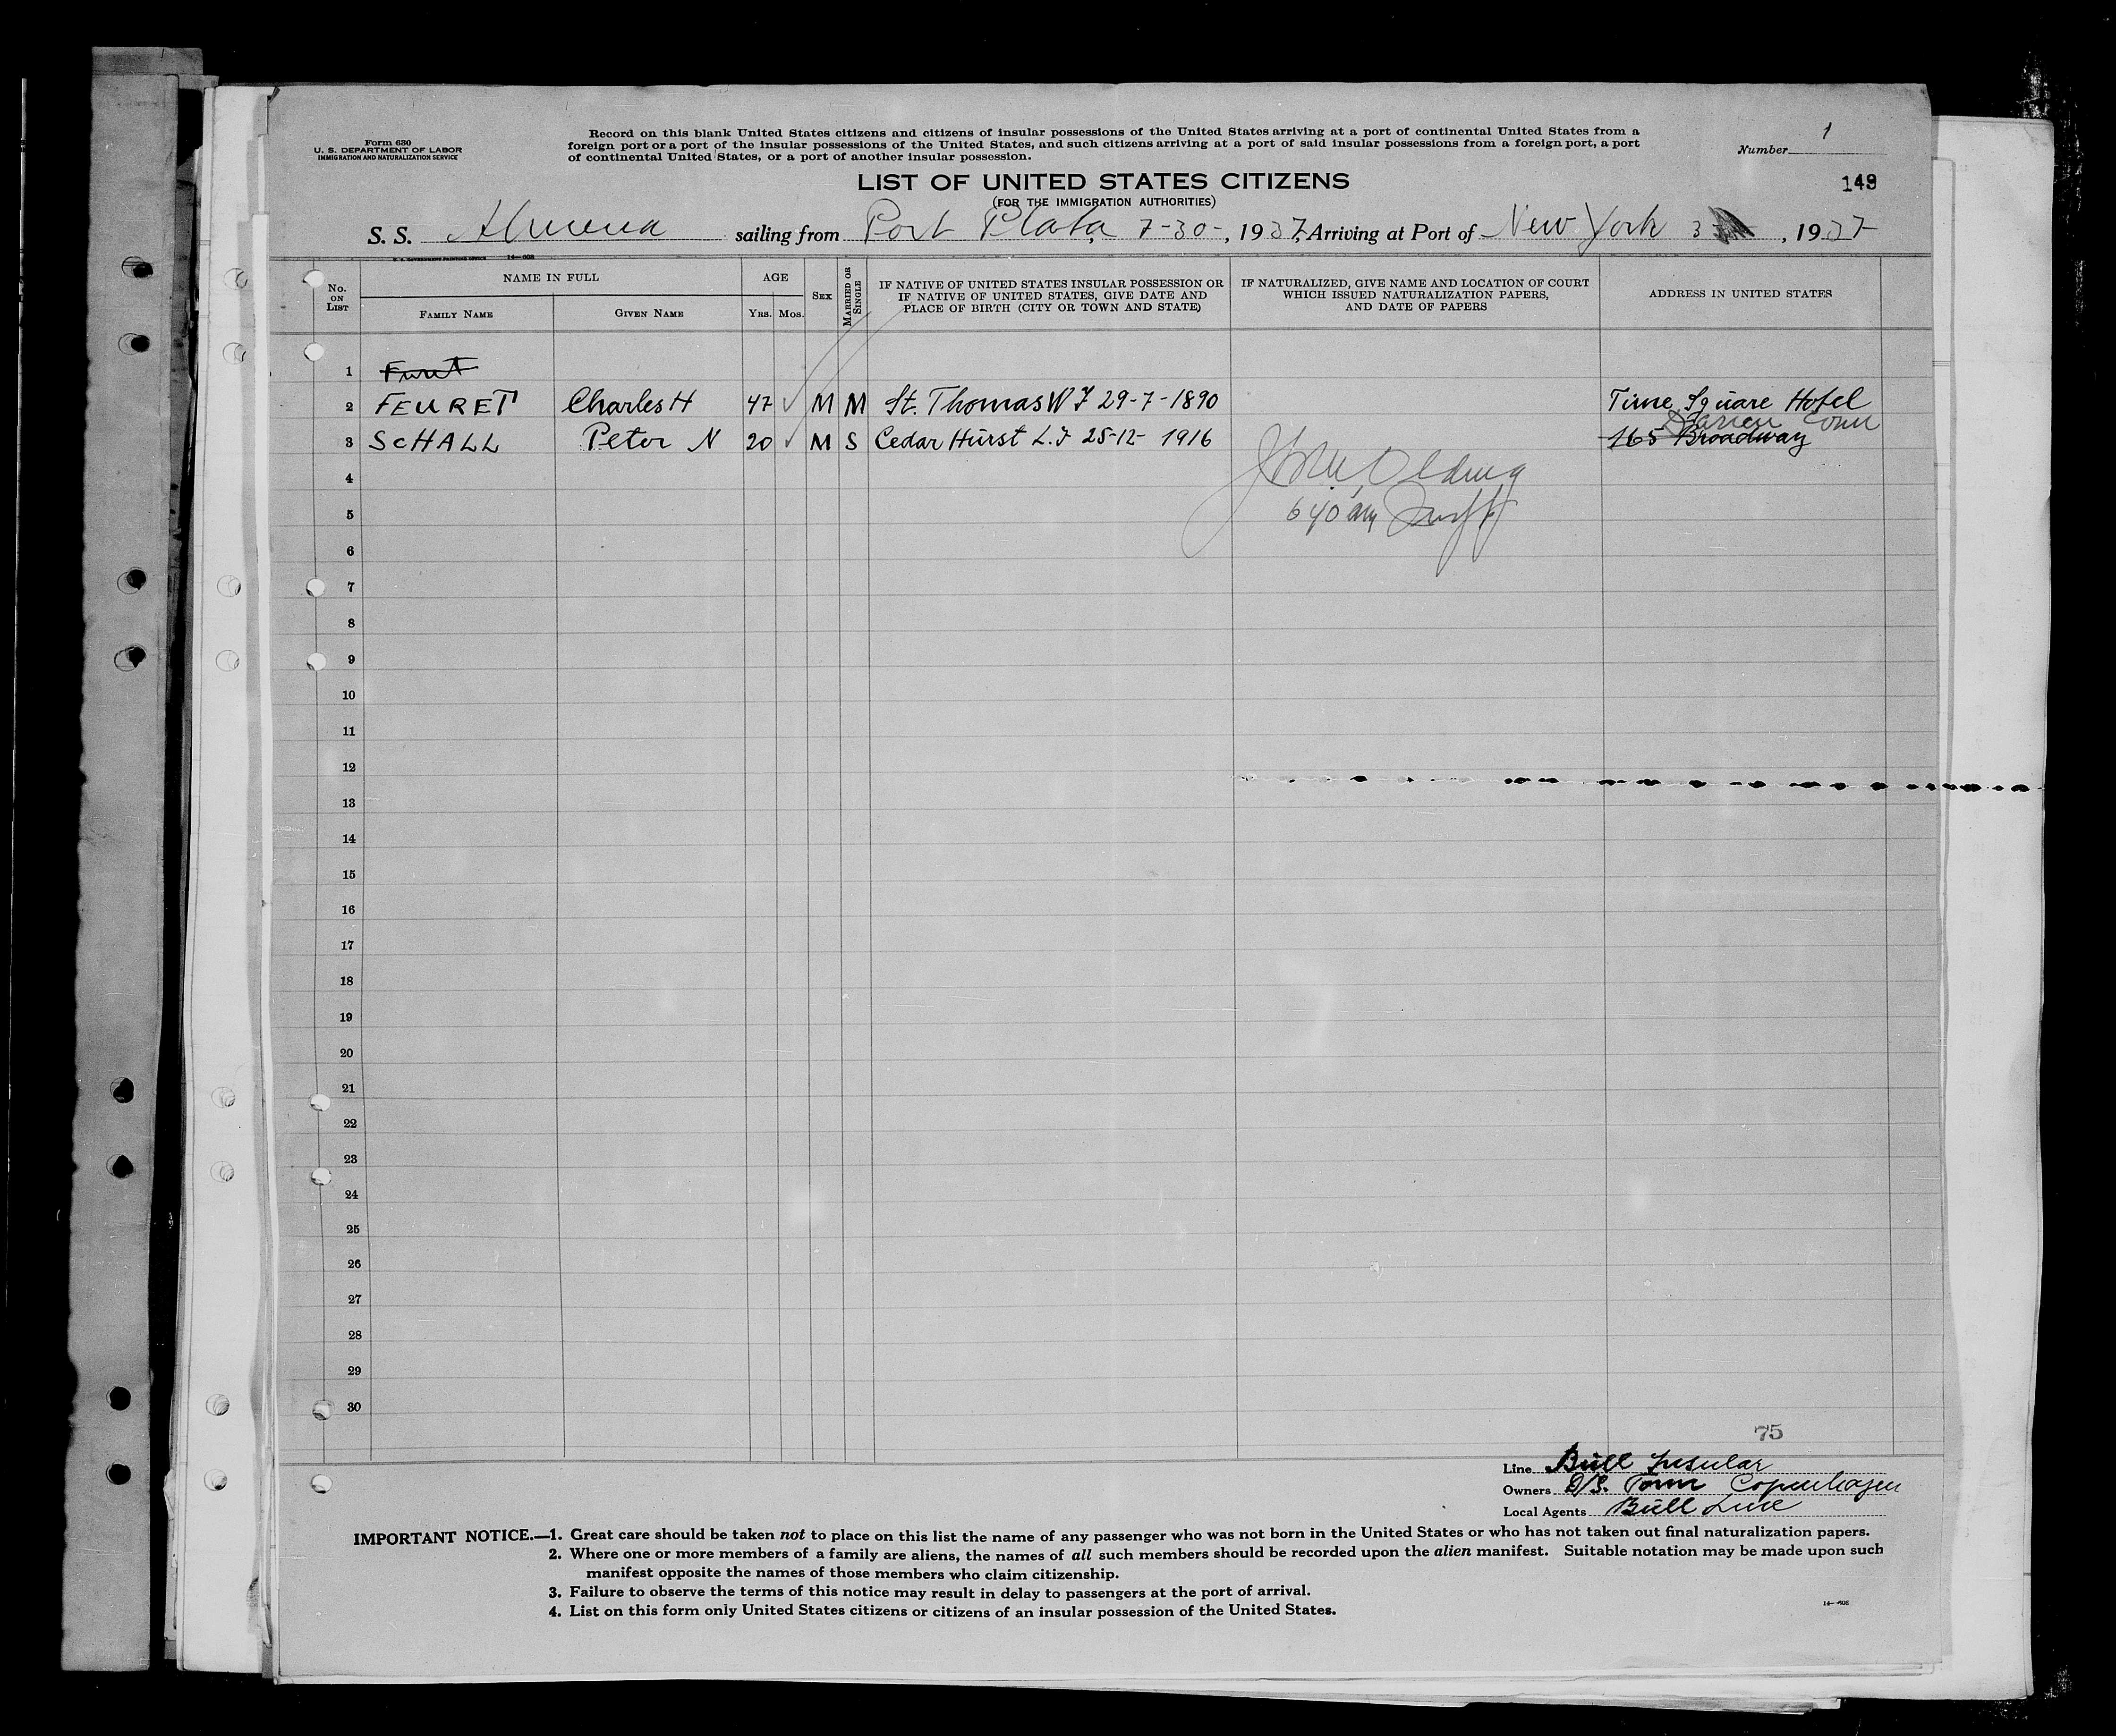 Form 630
U. S. DEPARTMENT OF LABOR
IMMIGRATION AND NATURALIZATION SERVICE
Record on this blank United States citizens and citizens of insular possessions of the United States arriving at a port of continental United States from a
foreign port or a port of the insular possessions of the United States, and such citizens arriving at a port of said insular possessions from a foreign port, a port
of continental United States, or a port of another insular possession.
Number 1
LIST OF UNITED STATES CITIZENS
149
(FOR THE IMMIGRATION AUTHORITIES)
S. S. sailing from Port Plata, 7-30-, 1937, Arriving at Port of New York 3 , 1937
U. S. GOVERNMENT PRINTING OFFICE 14—608
No. ON LIST
NAME IN FULL
FAMILY NAME
GIVEN NAME
AGE
YRS. MOS.
SEX
MARRIED OR SINGLE
IF NATIVE OF UNITED STATES INSULAR POSSESSION OR
IF NATIVE OF UNITED STATES, GIVE DATE AND
PLACE OF BIRTH (CITY OR TOWN AND STATE)
IF NATURALIZED, GIVE NAME AND LOCATION OF COURT
WHICH ISSUED NATURALIZATION PAPERS,
AND DATE OF PAPERS
ADDRESS IN UNITED STATES
1
2 FEURET Charles H 47 ✓ M M St. Thomas W I 29-7-1890 Time Square Hotel
Darien Conn
3 SCHALL Peter N 20 ✓ M S Cedar Hürst L.I 25-12-1916 165 Broadway
4
5
6
7
8
9
10
11
12
13
14
15
16
17
18
19
20
21
22
23
24
25
26
27
28
29
30
75
Line Büll Insular
Owners D/S. Torm Copenhagen
Local Agents Büll Line
IMPORTANT NOTICE.—1. Great care should be taken not to place on this list the name of any passenger who was not born in the United States or who has not taken out final naturalization papers.
2. Where one or more members of a family are aliens, the names of all such members should be recorded upon the alien manifest. Suitable notation may be made upon such
manifest opposite the names of those members who claim citizenship.
3. Failure to observe the terms of this notice may result in delay to passengers at the port of arrival.
4. List on this form only United States citizens or citizens of an insular possession of the United States.
14—608